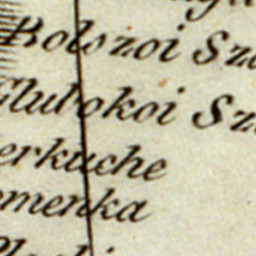 Bolszoi Sz
Glubokoi Sz
erkuche
menka